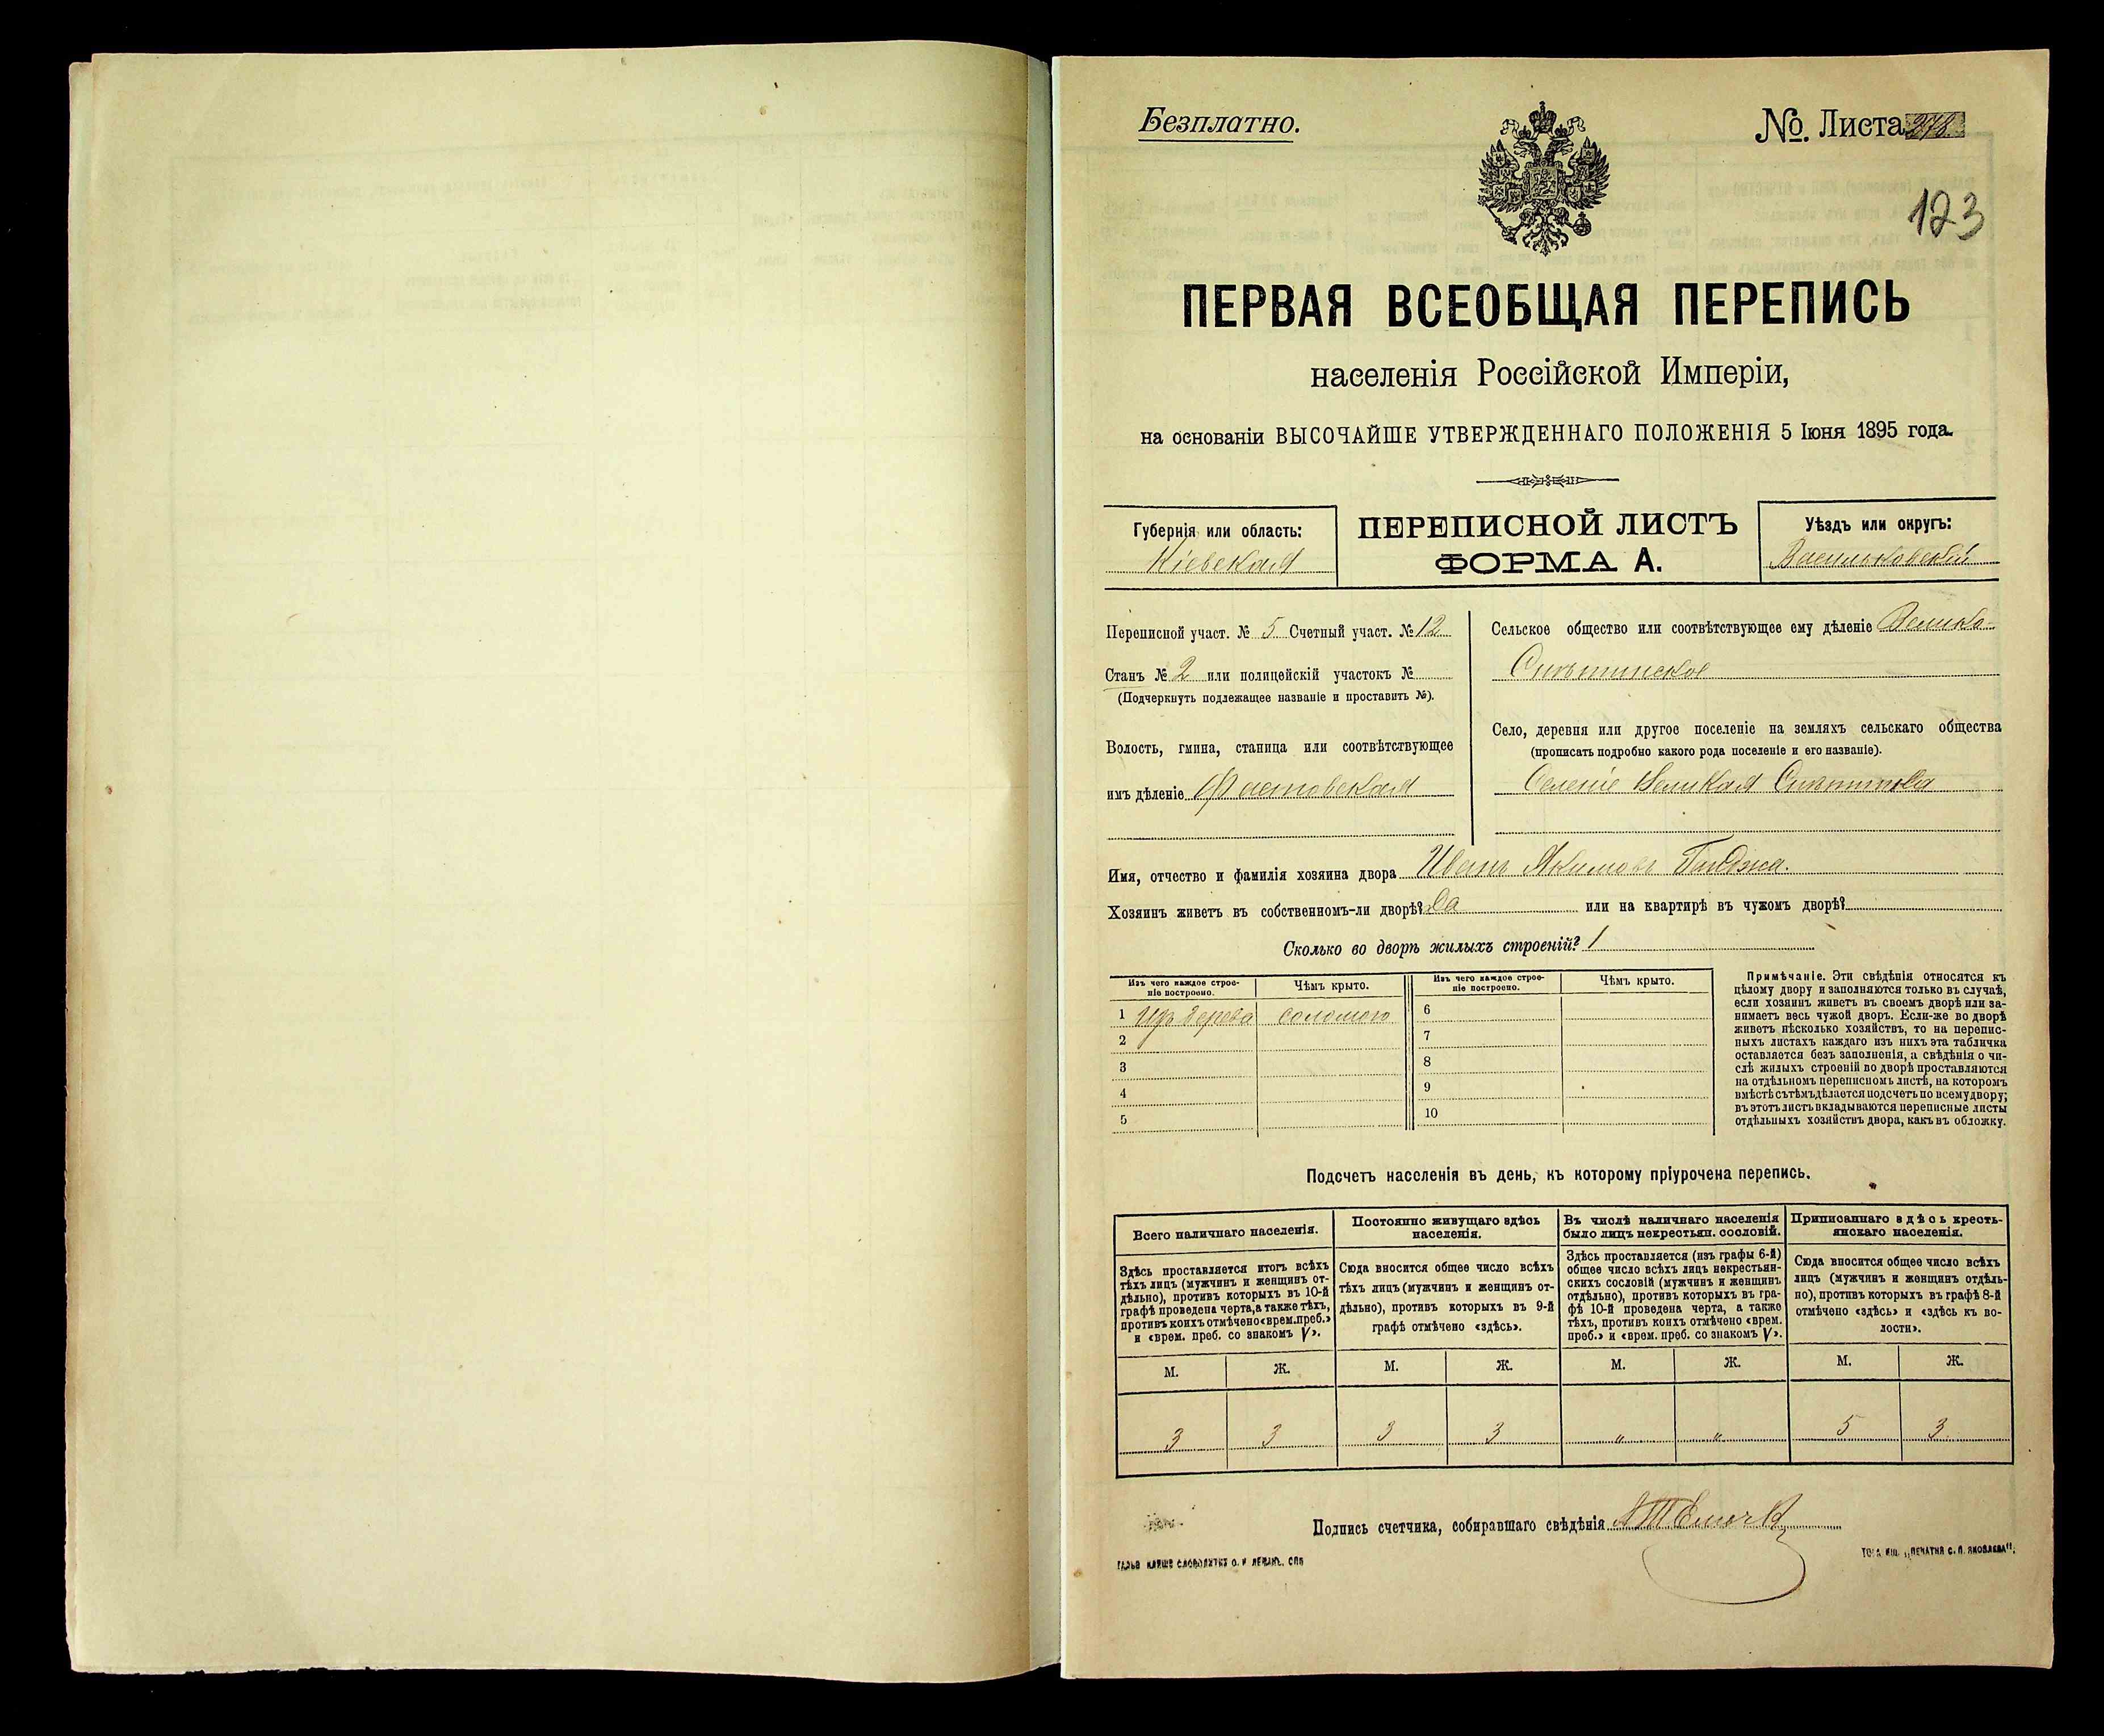 Безплатно.
№. Листа 278.
123
ПЕРВАЯ ВСЕОБЩАЯ ПЕРЕПИСЬ
населенія Россійской Имперіи,
на основаніи ВЫСОЧАЙШЕ УТВЕРЖДЕННАГО ПОЛОЖЕНІЯ 5 Іюня 1895 года.
Губернія или область:
Кіевская
ПЕРЕПИСНОЙ ЛИСТЪ
ФОРМА А.
Уѣздъ или округъ:
Васильковскій
Переписной участ. № 5 Счетный участ. № 12
Станъ № 2 или полицейскій участокъ №
(Подчеркнуть подлежащее названіе и проставить №).
Волость, гмина, станица или соотвѣтствующее
имъ дѣленіе Фастовская
Сельское общество или соотвѣтствующее ему дѣленіе Велико-
Снѣтинское
Село, деревня или другое поселеніе на земляхъ сельскаго общества
(прописать подробно какого рода поселеніе и его названіе).
Селеніе Великая Снѣтинка
Имя, отчество и фамилія хозяина двора Иванъ Якимовъ
Хозяинъ живетъ въ собственномъ-ли дворѣ? Да или на квартирѣ въ чужомъ дворѣ?
Сколько во дворѣ жилыхъ строеній? 1
Изъ чего каждое строе-
ніе построено.
Чѣмъ крыто.
Изъ чего каждое строе-
ніе построено.
Чѣмъ крыто.
1 Изъ дерева соломою
2
3
4
5
6
7
8
9
10
Примѣчаніе. Эти свѣдѣнія относятся къ
цѣлому двору и заполняются только въ случаѣ,
если хозяинъ живетъ въ своемъ дворѣ или за-
нимаетъ весь чужой дворъ. Если-же во дворѣ
живетъ нѣсколько хозяйствъ, то на перепис-
ныхъ листахъ каждаго изъ нихъ эта табличка
оставляется безъ заполненія, а свѣдѣнія о чи-
слѣ жилыхъ строеній во дворѣ проставляются
на отдѣльномъ переписномъ листѣ, на которомъ
вмѣстѣ съ тѣмъ дѣлается подсчетъ по всему двору;
въ этотъ листъ вкладываются переписные листы
отдѣльныхъ хозяйствъ двора, какъ въ обложку.
Подсчетъ населенія въ день, къ которому пріурочена перепись.
Всего наличнаго населенія.
Здѣсь проставляется итогъ всѣхъ
тѣхъ лицъ (мужчинъ и женщинъ от-
дѣльно), противъ которыхъ въ 10-й
графѣ проведена черта, а также тѣхъ,
противъ коихъ отмѣчено «врем. преб.»
и «врем. преб. со знакомъ V».
Постоянно живущаго здѣсь
населенія.
Сюда вносится общее число всѣхъ
тѣхъ лицъ (мужчинъ и женщинъ от-
дѣльно), противъ которыхъ въ 9-й
графѣ отмѣчено «здѣсь».
Въ числѣ наличнаго населенія
было лицъ некрестьян. сословій.
Здѣсь проставляется (изъ графы 6-й)
общее число всѣхъ лицъ некрестьян-
скихъ сословій (мужчинъ и женщинъ
отдѣльно), противъ которыхъ въ гра-
фѣ 10-й проведена черта, а также
тѣхъ, противъ коихъ отмѣчено «врем.
преб.» и «врем. преб. со знакомъ V».
Приписаннаго здѣсь кресть-
янскаго населенія.
Сюда вносится общее число всѣхъ
лицъ (мужчинъ и женщинъ отдѣль-
но), противъ которыхъ въ графѣ 8-й
отмѣчено «здѣсь» и «здѣсь къ во-
лости».
М. Ж. М. Ж. М. Ж. М. Ж.
3 3 3 3 " " 5 3
Подпись счетчика, собиравшаго свѣдѣнія